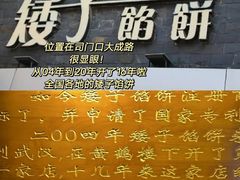 矮子馅餅
位置在司门口大成路
很显眼！
从04年到20年开了16年啦
全国各地的矮子馅饼
如今矮子馅饼注册
标了 并申请了国家专利
二00四年矮子馅饼
利武汉 在黄鹤楼下开了
一家店 十几年来这家店